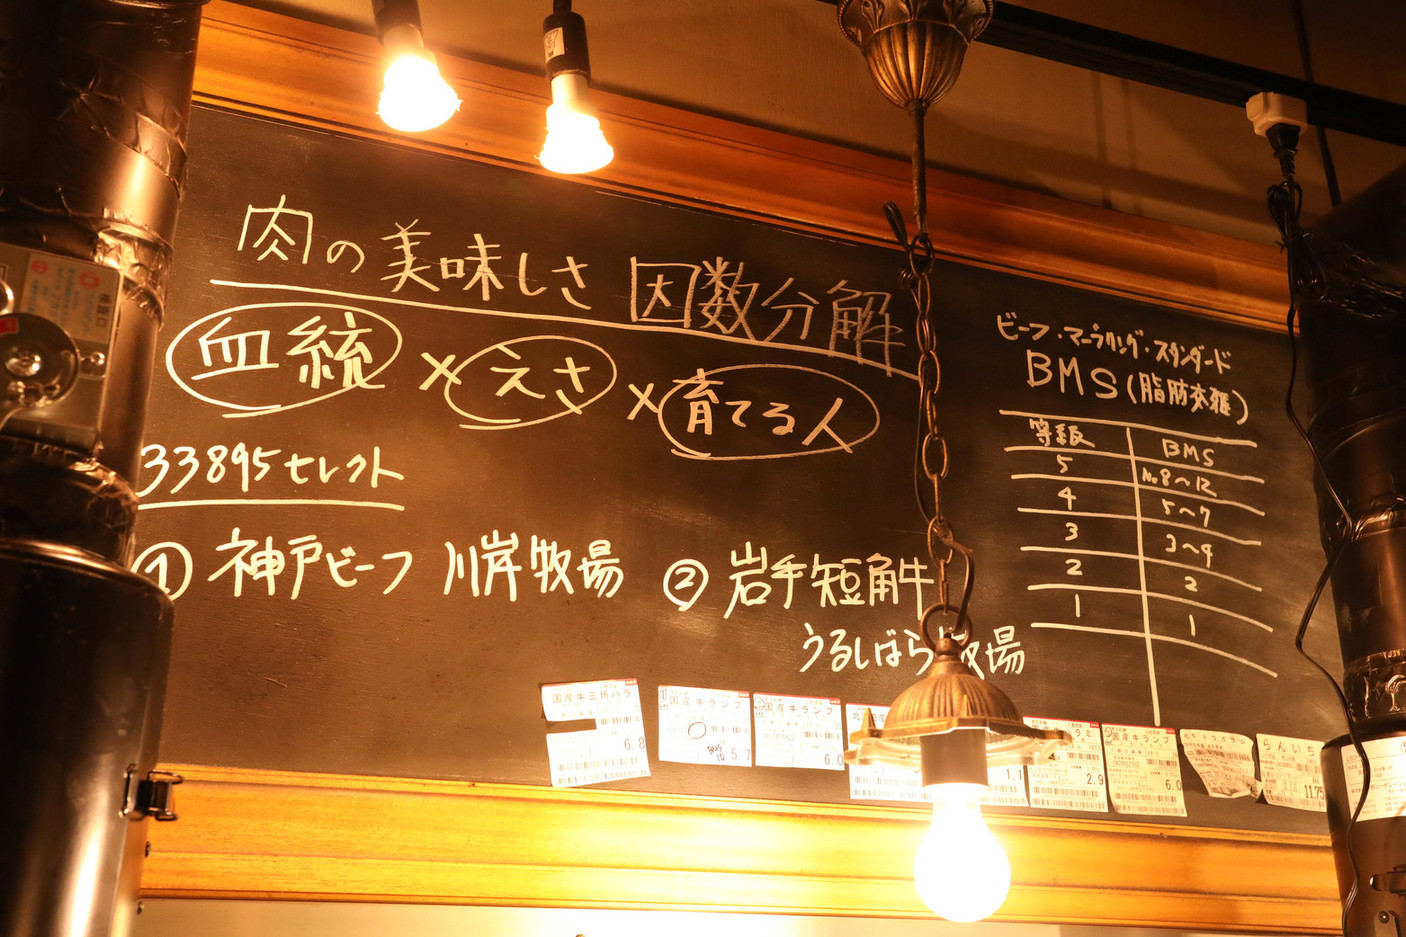 肉の美味しさ 因数分解
血統 × えさ × 育てる人
33895セレクト
① 神戸ビーフ 川岸牧場
② 岩手短角牛
うるしばら牧場
ビーフ・マーブリング・スタンダード
BMS(脂肪交雑)
等級 BMS
5 No.8〜12
4 5〜7
3 3〜4
2 2
1 1
国産牛三角バラ
6.8
国産牛ランプ
5.7
国産牛ランプ
6.0
1.1
2.9
国産牛ランプ
6.0
らんいち
11.75